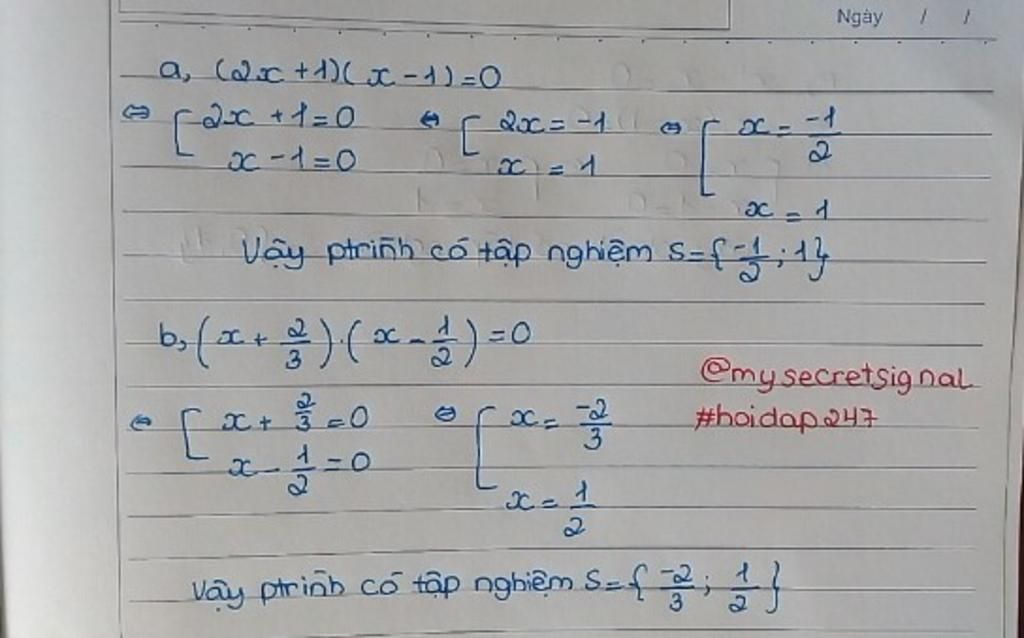 Ngày / /
a, (2x+1)(x-1)=0
⇔ [ 2x+1=0 ⇔ [ 2x=-1 ⇔ [ x=-1/2
x-1=0 x=1 x=1
Vậy ptrình có tập nghiệm S={-1/2; 1}
b, (x+2/3).(x-1/2)=0
@mysecretsignal
⇔ [ x+2/3=0 ⇔ [ x=-2/3 #hoidap247
x-1/2=0 x=1/2
Vậy ptrình có tập nghiệm S={-2/3; 1/2}